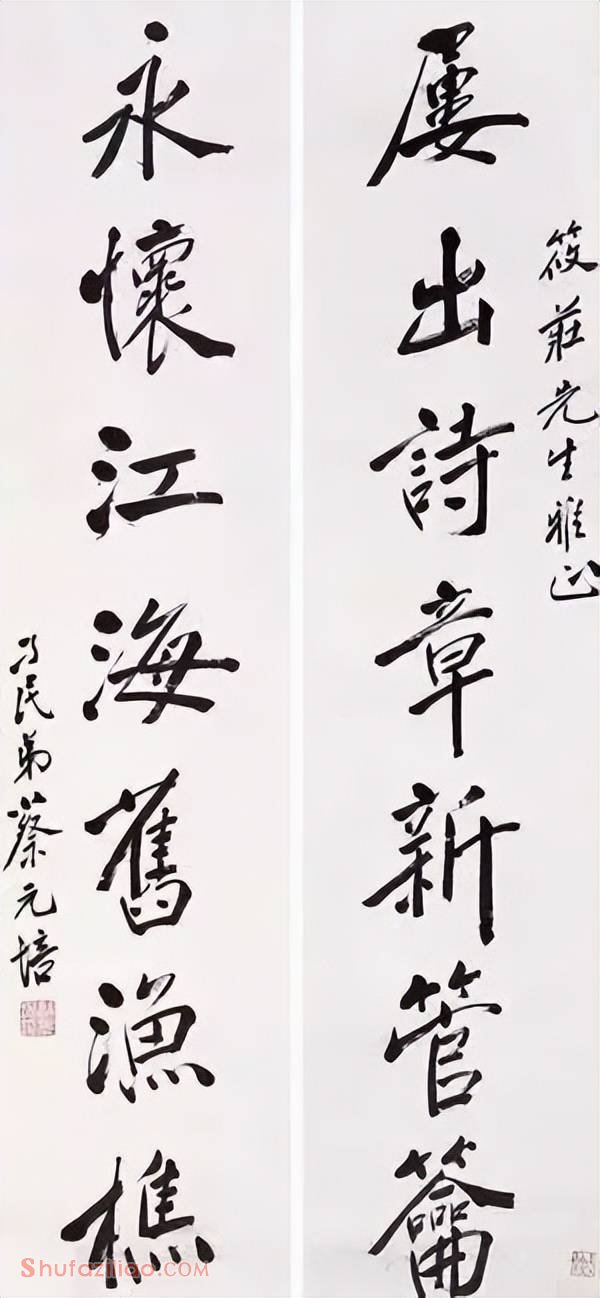 筱莊先生雅正
屢出詩章新管籥
永懷江海舊漁樵
孑民弟蔡元培
Shufaziliao.COM